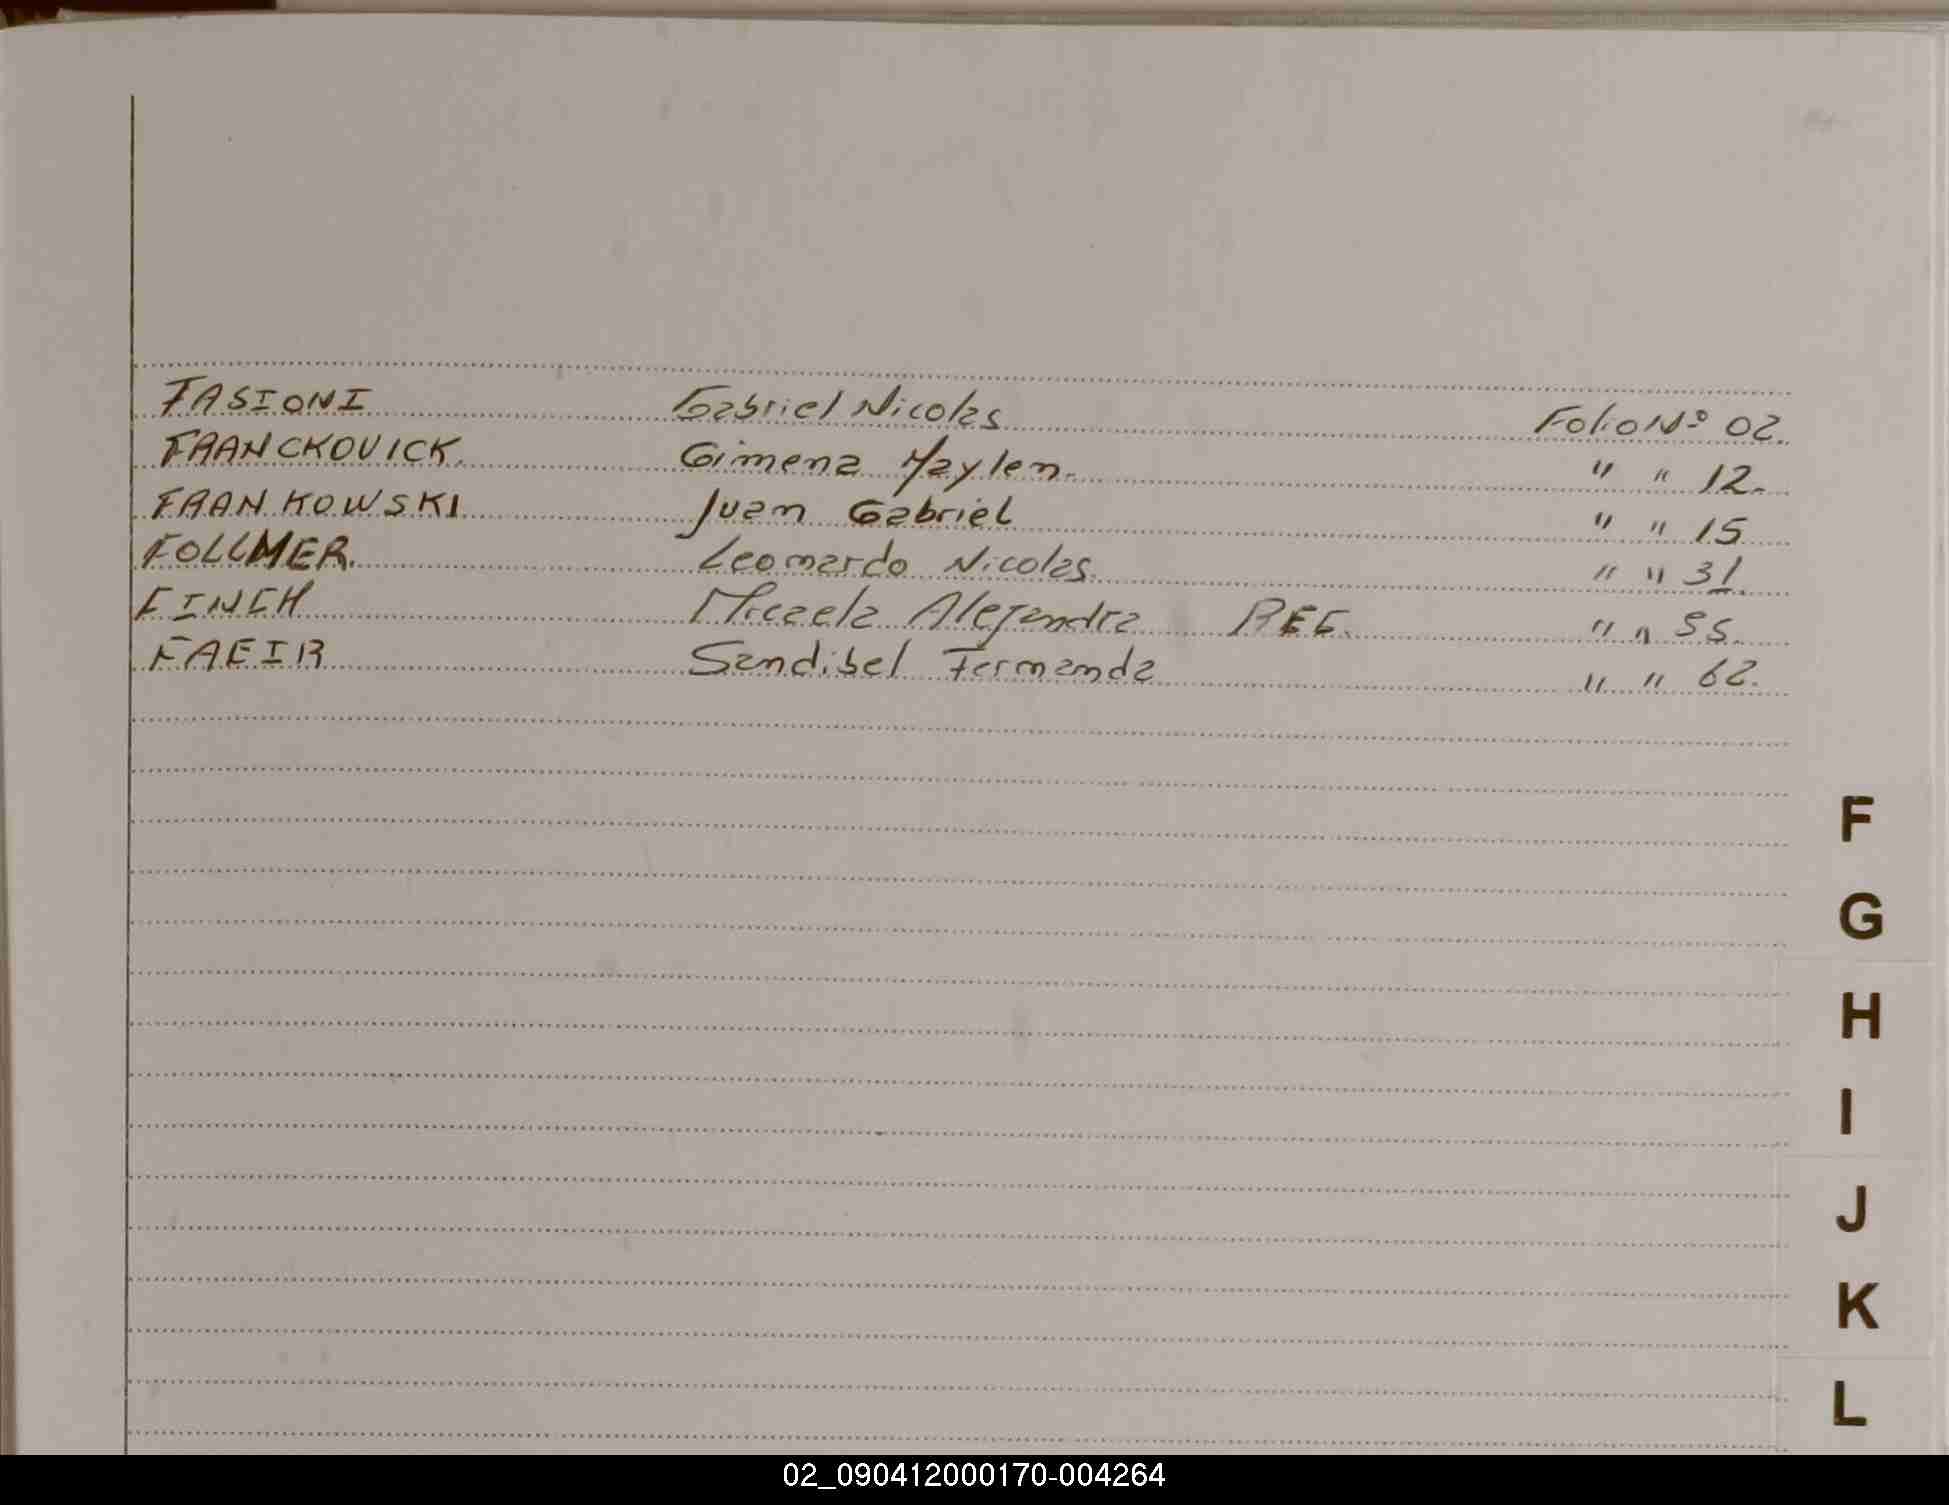 FASIONI Gabriel Nicolas Folio Nº 02.
FRANCKOVICK. Gimena Maylen. " " 12.
FRANKOWSKI Juan Gabriel " " 15
FOLLMER. Leonardo Nicolas. " " 31.
FINCH Micaela Alejandra REC. " " 55.
FAEIR Sandibel Fernanda " " 62.
F
G
H
I
J
K
L
02_090412000170-004264